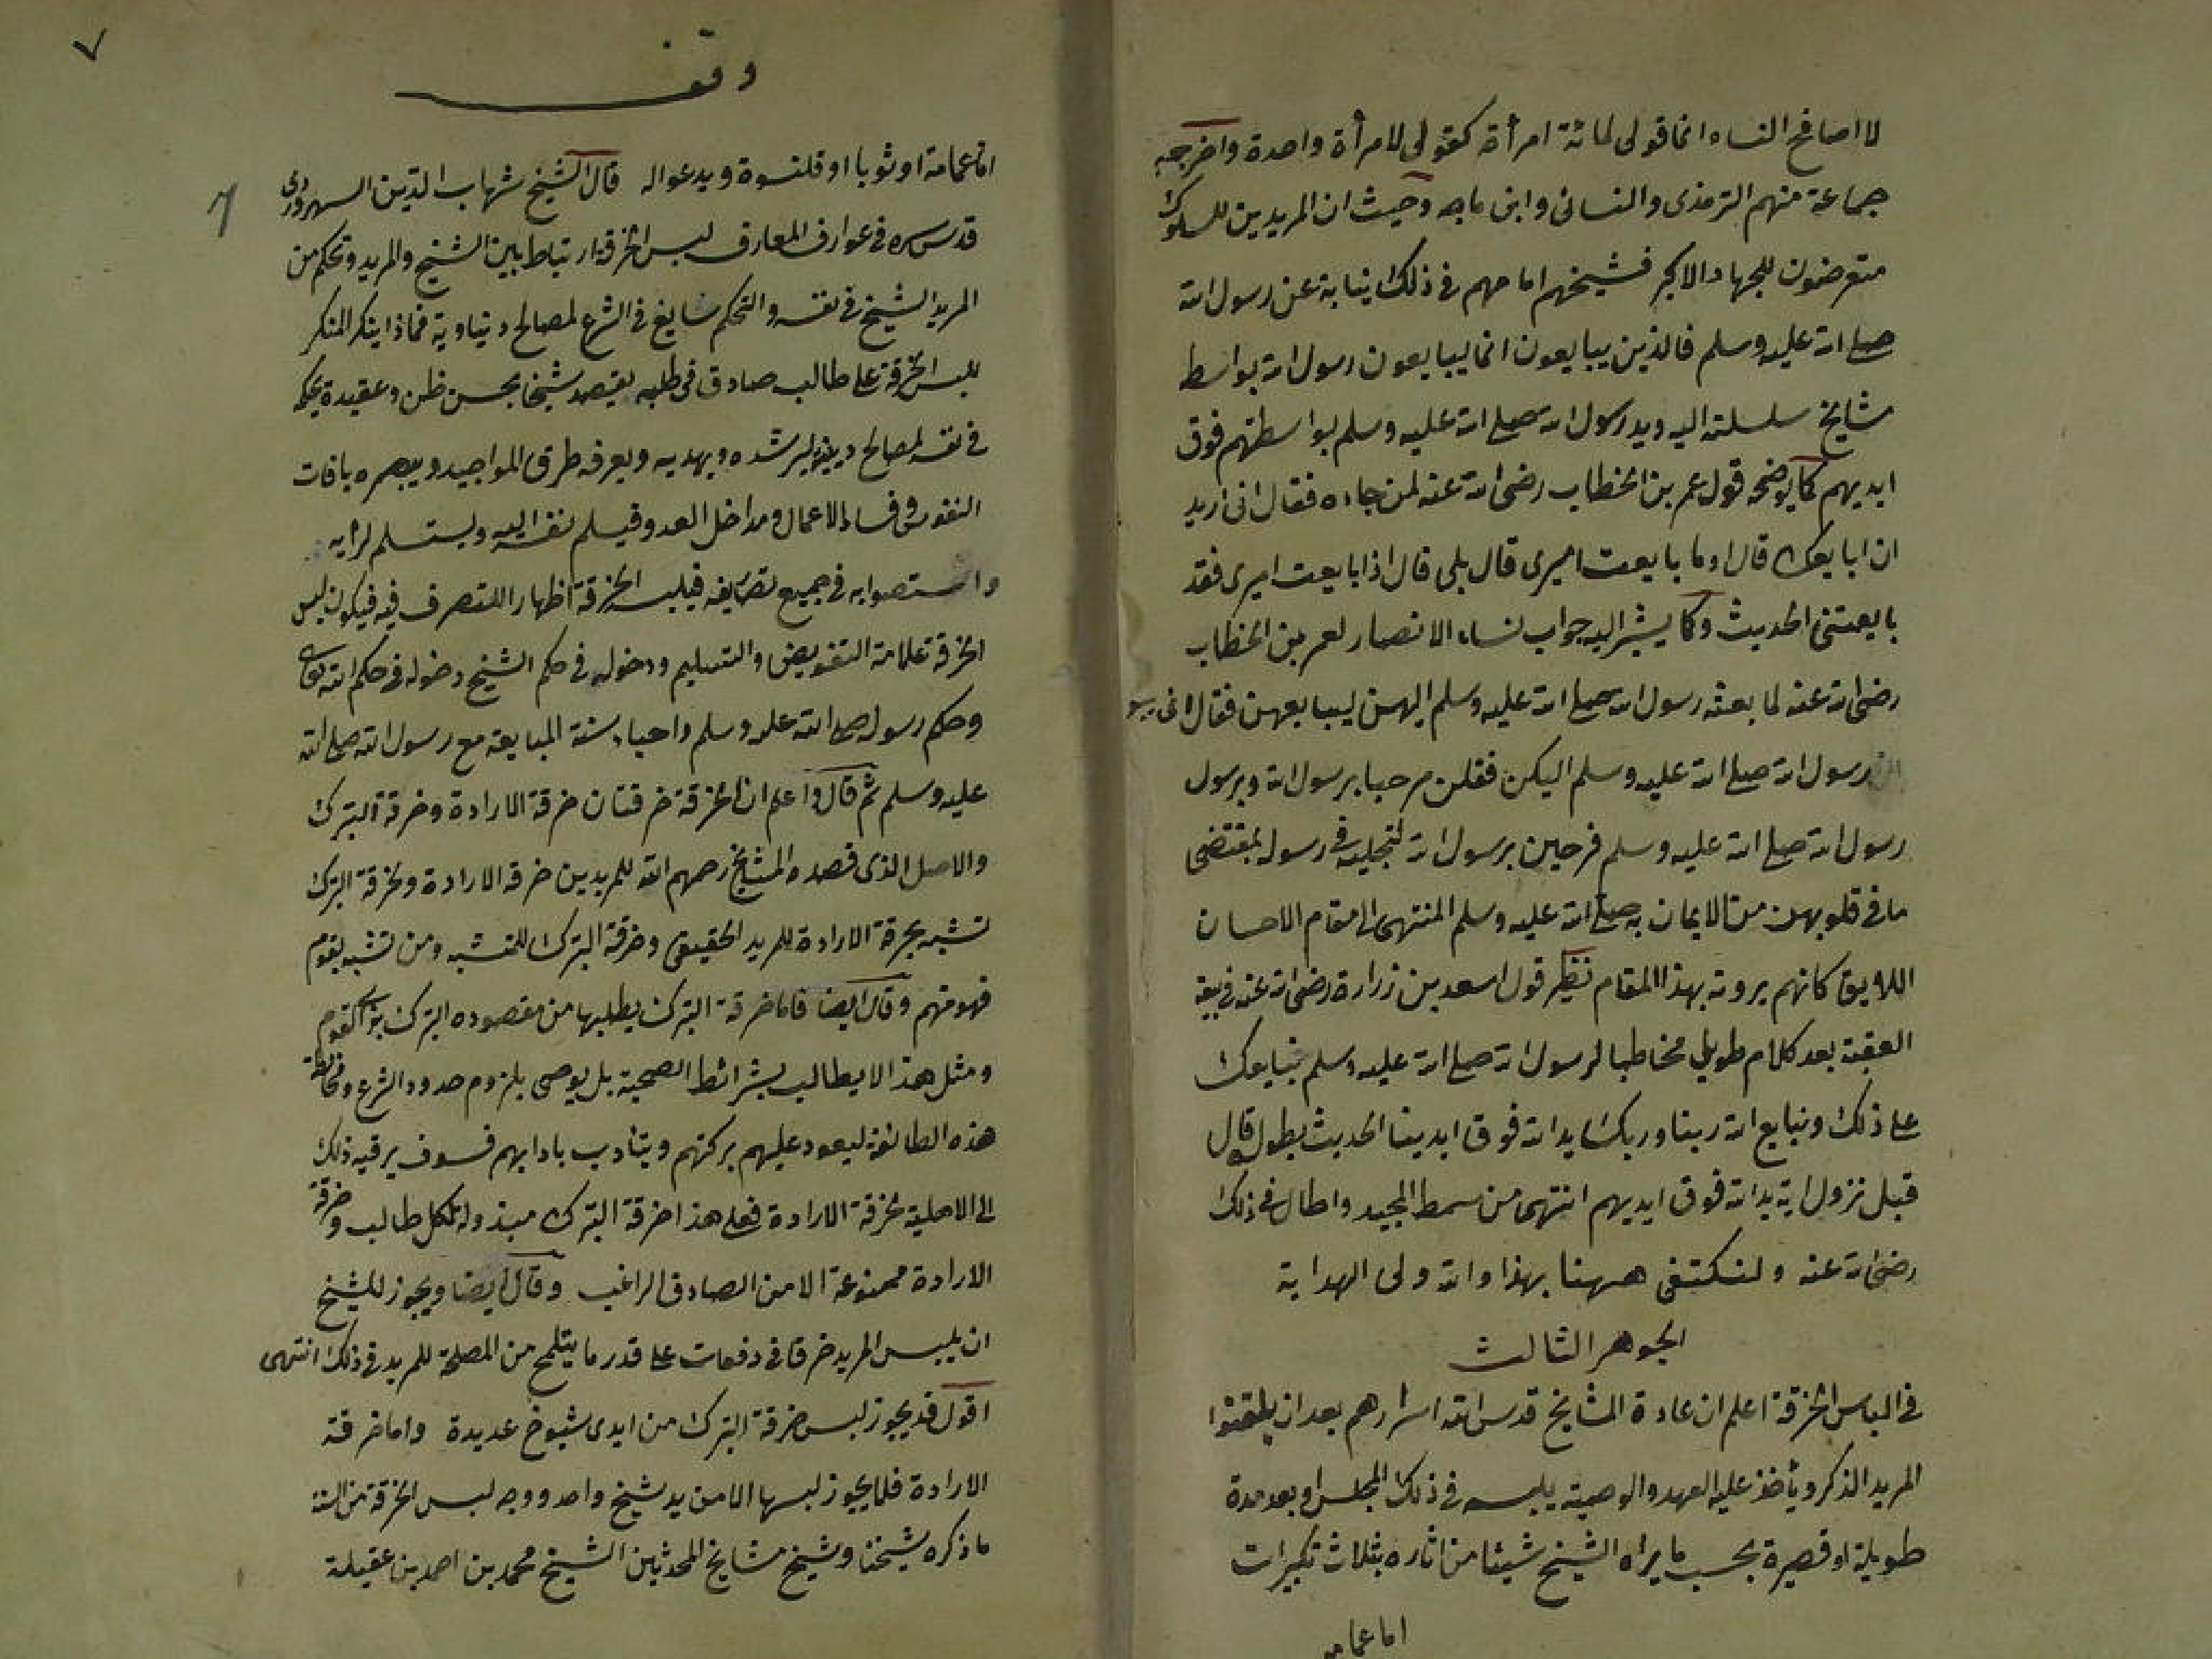 لا اصافح النساء انما قولى لمائة امرأة كقولى لامرأة واحدة واخرجه
جماعة منهم الترمذى والنسائى وابن ماجه وحيث ان المريدين للسلوك
متعرضون للجهاد الاكبر فشيخهم امامهم فى ذلك نيابة عن رسول الله
صلى الله عليه وسلم فالذين يبايعون انما يبايعون رسول الله بواسط
مشايخ سلسلته اليه ويد رسول الله صلى الله عليه وسلم بواسطتهم فوق
ايديهم كما يوضحه قول عمر بن الخطاب رضى الله عنه لمن جاءه فقال انى اريد
ان ابايعك قال او ما بايعت اميرى قال بلى قال اذا بايعت اميرى فقد
بايعتنى الحديث وكما يشير اليه جواب نساء الانصار لعمر بن الخطاب
رضى الله عنه لما بعثه رسول الله صلى الله عليه وسلم اليهن ليبايعهن فقال انى رسو
رسول الله صلى الله عليه وسلم اليكن فقلن مرحبا برسول الله وبرسول
رسول الله صلى الله عليه وسلم فرحين برسول الله لتجليه فى رسوله بمقتضى
ما فى قلوبهن من الايمان به صلى الله عليه وسلم المنتهى الى مقام الاحسان
اللايق كانهم يرونه بهذا المقام نظير قول اسعد بن زرارة رضى الله عنه فى بيعة
العقبة بعد كلام طويل مخاطبا لرسول الله صلى الله عليه وسلم نبايعك
على ذلك ونبايع الله ربنا وربك يد الله فوق ايدينا الحديث بطوله قال
قبل نزول اية يد الله فوق ايديهم انتهى من سمط المجيد واطال فى ذلك
رضى الله عنه ولنكتفى ههنا بهذا والله ولى الهداية
الجوهر الثالث
فى الباس الخرقة اعلم ان عادة المشايخ قدس الله اسرارهم بعد ان يلقنوا
المريد الذكر ويأخذ عليه العهد والوصية يلبسه فى ذلك المجلس او بعد مدة
طويلة او قصيرة بحسب ما يراه الشيخ شيئا من اثاره بثلاث تكبيرات
اما عمامة
وقف
٧
اما عمامة او ثوبا او قلنسوة ويدعو له قال الشيخ شهاب الدين السهروردى
قدس سره فى عوارف المعارف لبس الخرقة ارتباط بين الشيخ والمريد وتحكم من
المريد الشيخ فى نفسه والتحكم سايغ فى الشرع لمصالح دنياوية فماذا ينكر المنكر
للبس الخرقة على طالب صادق فى طلبه يقصد شيخا بحسن ظن وعقيدة يحكمه
فى نفسه لمصالح دينه يرشده ويهديه ويعرفه طرق المواجيد ويبصره بافات
النفوس وفساد الاعمال ومداخل العدو فيسلم نفسه اليه ويستسلم لرأيه
واستصوابه فى جميع تصاريفه فيلبسه الخرقة اظهارا للتصرف فيه فيكون لبس
الخرقة علامة التفويض والتسليم ودخوله فى حكم الشيخ دخوله فى حكم الله تعالى
وحكم رسوله صلى الله عليه وسلم واحياء سنة المبايعة مع رسول الله صلى الله
عليه وسلم ثم قال واعلم ان الخرقة خرقتان خرقة الارادة وخرقة التبرك
والاصل الذى قصده المشايخ رحمهم الله للمريدين خرقة الارادة وخرقة التبرك
تشبه بخرقة الارادة للمريد الحقيقى وخرقة التبرك للمتشبه ومن تشبه بقوم
فهو منهم وقال ايضا فاما خرقة التبرك يطلبها من مقصوده التبرك بزى القوم
ومثل هذا لا يطالب بشرائط الصحبة بل يوصى بلزوم حدود الشرع ومخالطة
هذه الطائفة ليعود عليهم بركتهم ويتأدب بادابهم فسوف يرقيه ذلك
الى الاهلية لخرقة الارادة فعلى هذا خرقة التبرك مبذولة لكل طالب وخرقة
الارادة ممنوعة الا من الصادق الراغب وقال ايضا ويجوز للشيخ
ان يلبس المريد خرقا فى دفعات على قدر ما يتلمح من المصلحة للمريد فى ذلك انتهى
اقول قد يجوز لبس خرقة التبرك من ايدى شيوخ عديدة واما خرقة
الارادة فلا يجوز لبسها الا من يد شيخ واحد ووجه لبس الخرقة من السنة
ما ذكره شيخنا وشيخ مشايخ المحدثين الشيخ محمد بن احمد بن عقيلة